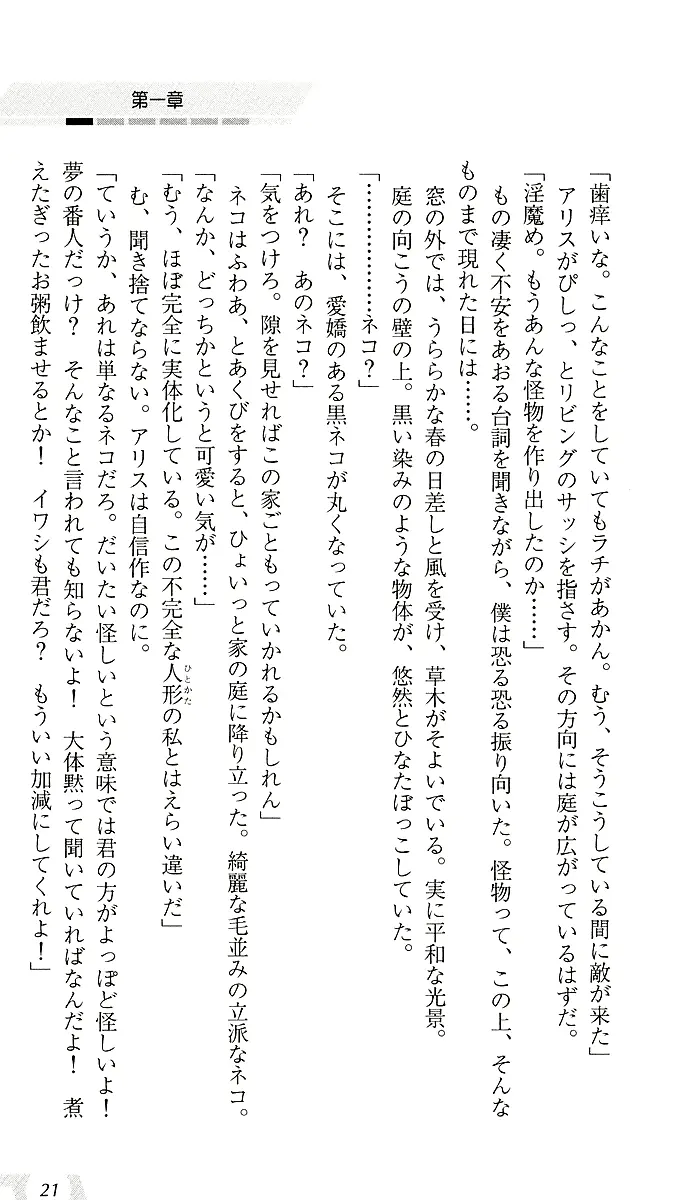 第一章
「歯痒いな。こんなことをしていてもラチがあかん。むう、そうこうしている間に敵が来た」
アリスがぴしっ、とリビングのサッシを指さす。その方向には庭が広がっているはずだ。
「淫魔め。もうあんな怪物を作り出したのか……」
もの凄く不安をあおる台詞を聞きながら、僕は恐る恐る振り向いた。怪物って、この上、そんな
ものまで現れた日には……。
窓の外では、うららかな春の日差しと風を受け、草木がそよいでいる。実に平和な光景。
庭の向こうの壁の上。黒い染みのような物体が、悠然とひなたぼっこしていた。
「………………ネコ？」
そこには、愛嬌のある黒ネコが丸くなっていた。
「あれ？　あのネコ？」
「気をつけろ。隙を見せればこの家ごともっていかれるかもしれん」
ネコはふわあ、とあくびをすると、ひょいっと家の庭に降り立った。綺麗な毛並みの立派なネコ。
「なんか、どっちかというと可愛い気が……」
「むう、ほぼ完全に実体化している。この不完全な人形の私とはえらい違いだ」
ひとかた
む、聞き捨てならない。アリスは自信作なのに。
「ていうか、あれは単なるネコだろ。だいたい怪しいという意味では君の方がよっぽど怪しいよ！
夢の番人だっけ？　そんなこと言われても知らないよ！　大体黙って聞いていればなんだよ！　煮
えたぎったお粥飲ませるとか！　イワシも君だろ？　もういい加減にしてくれよ！」
21